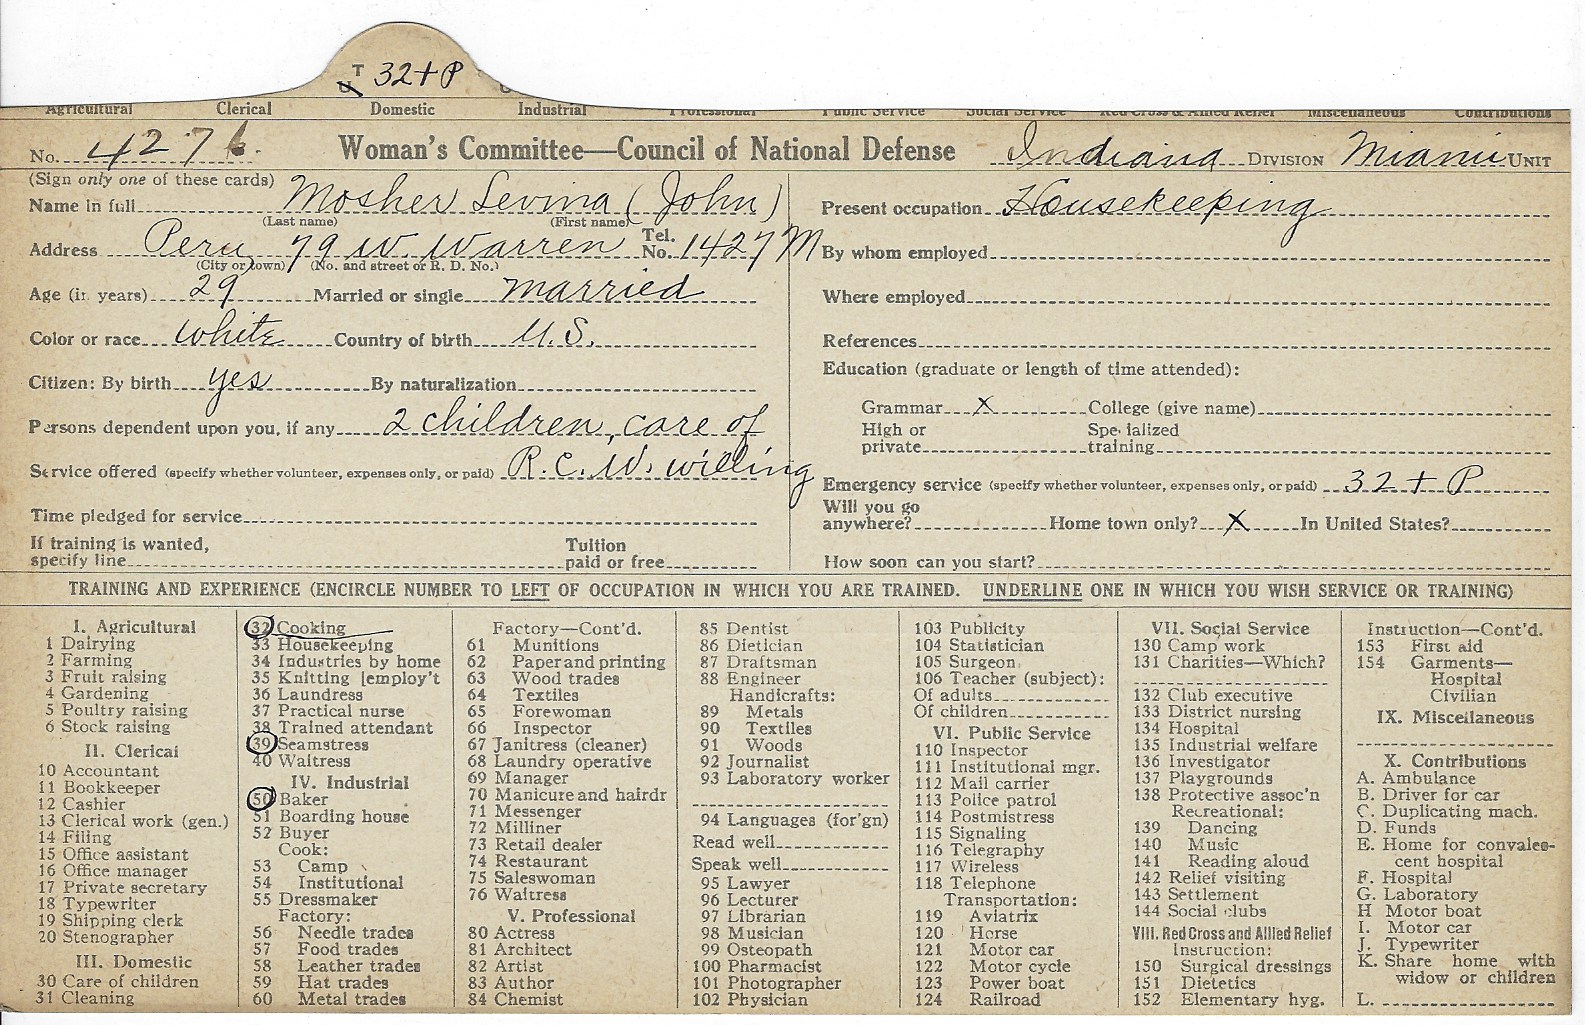 T 32 + P
Agricultural Clerical Domestic Industrial Professional Public Service Social Service Red Cross & Allied Relief Miscellaneous Contributions
No. 4276. Woman's Committee—Council of National Defense Indiana DIVISION Miami UNIT
(Sign only one of these cards)
Name in full Mosher Levina (John)
(Last name) (First name)
Address Peru 79 W. Warren Tel. No. 1427 M
(City or town) (No. and street or R. D. No.)
Age (in years) 29 Married or single married
Color or race white Country of birth U.S.
Citizen: By birth yes By naturalization
Persons dependent upon you, if any 2 children, care of
Service offered (specify whether volunteer, expenses only, or paid) R.C.W. willing
Time pledged for service
If training is wanted, specify line Tuition paid or free
Present occupation Housekeeping
By whom employed
Where employed
References
Education (graduate or length of time attended):
Grammar X College (give name)
High or private Specialized training
Emergency service (specify whether volunteer, expenses only, or paid) 32 + P
Will you go anywhere? Home town only? X In United States?
How soon can you start?
TRAINING AND EXPERIENCE (ENCIRCLE NUMBER TO LEFT OF OCCUPATION IN WHICH YOU ARE TRAINED. UNDERLINE ONE IN WHICH YOU WISH SERVICE OR TRAINING)
I. Agricultural
1 Dairying
2 Farming
3 Fruit raising
4 Gardening
5 Poultry raising
6 Stock raising
II. Clerical
10 Accountant
11 Bookkeeper
12 Cashier
13 Clerical work (gen.)
14 Filing
15 Office assistant
16 Office manager
17 Private secretary
18 Typewriter
19 Shipping clerk
20 Stenographer
III. Domestic
30 Care of children
31 Cleaning
32 Cooking
33 Housekeeping
34 Industries by home
35 Knitting [employ't
36 Laundress
37 Practical nurse
38 Trained attendant
39 Seamstress
40 Waitress
IV. Industrial
50 Baker
51 Boarding house
52 Buyer
Cook:
53 Camp
54 Institutional
55 Dressmaker
Factory:
56 Needle trades
57 Food trades
58 Leather trades
59 Hat trades
60 Metal trades
Factory—Cont'd.
61 Munitions
62 Paper and printing
63 Wood trades
64 Textiles
65 Forewoman
66 Inspector
67 Janitress (cleaner)
68 Laundry operative
69 Manager
70 Manicure and hairdr
71 Messenger
72 Milliner
73 Retail dealer
74 Restaurant
75 Saleswoman
76 Waitress
V. Professional
80 Actress
81 Architect
82 Artist
83 Author
84 Chemist
85 Dentist
86 Dietician
87 Draftsman
88 Engineer
Handicrafts:
89 Metals
90 Textiles
91 Woods
92 Journalist
93 Laboratory worker
94 Languages (for'gn)
Read well
Speak well
95 Lawyer
96 Lecturer
97 Librarian
98 Musician
99 Osteopath
100 Pharmacist
101 Photographer
102 Physician
103 Publicity
104 Statistician
105 Surgeon
106 Teacher (subject):
Of adults
Of children
VI. Public Service
110 Inspector
111 Institutional mgr.
112 Mail carrier
113 Police patrol
114 Postmistress
115 Signaling
116 Telegraphy
117 Wireless
118 Telephone
Transportation:
119 Aviatrix
120 Horse
121 Motor car
122 Motor cycle
123 Power boat
124 Railroad
VII. Social Service
130 Camp work
131 Charities—Which?
132 Club executive
133 District nursing
134 Hospital
135 Industrial welfare
136 Investigator
137 Playgrounds
138 Protective assoc'n
Recreational:
139 Dancing
140 Music
141 Reading aloud
142 Relief visiting
143 Settlement
144 Social clubs
VIII. Red Cross and Allied Relief
Instruction:
150 Surgical dressings
151 Dietetics
152 Elementary hyg.
Instruction—Cont'd.
153 First aid
154 Garments—
Hospital
Civilian
IX. Miscellaneous
X. Contributions
A. Ambulance
B. Driver for car
C. Duplicating mach.
D. Funds
E. Home for convales-
cent hospital
F. Hospital
G. Laboratory
H Motor boat
I. Motor car
J. Typewriter
K. Share home with
widow or children
L.